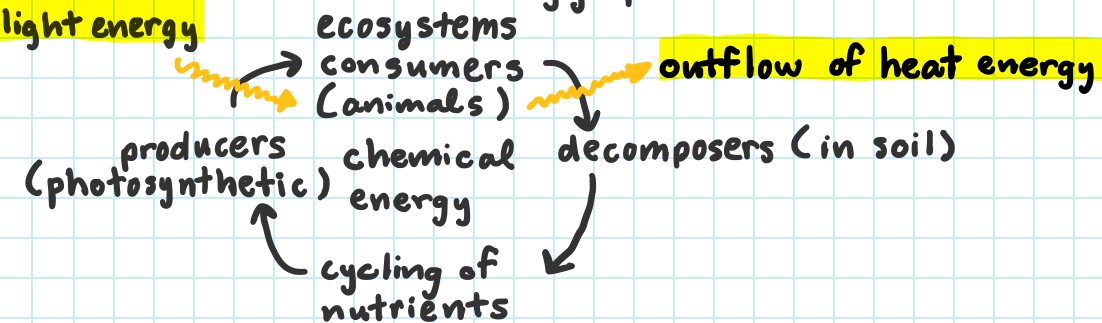 light energy
ecosystems
consumers
(animals)
outflow of heat energy
producers
(photosynthetic)
chemical
energy
decomposers (in soil)
cycling of
nutrients